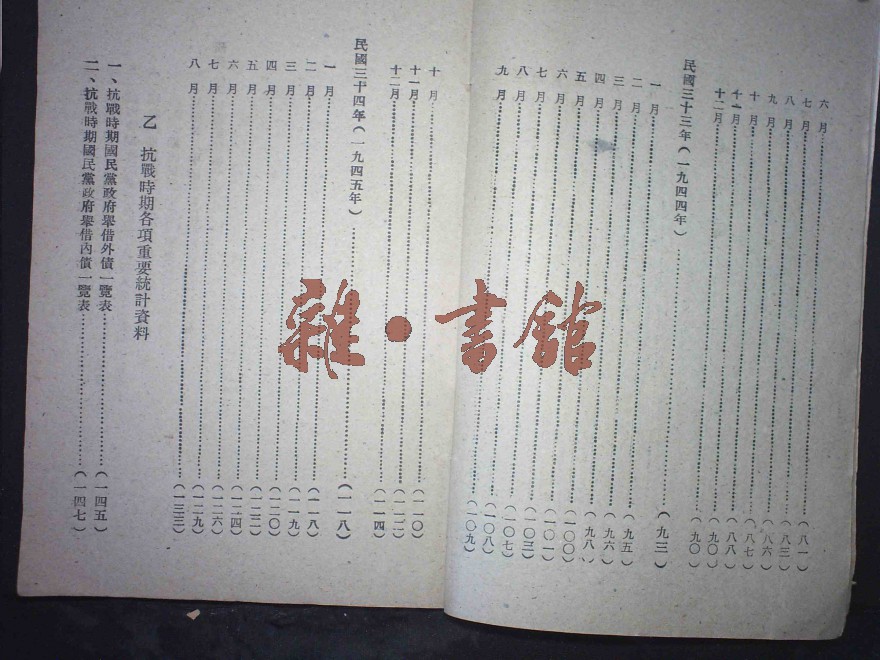 六月………(八一)
七月………(八三)
八月………(八六)
九月………(八七)
十月………(八八)
十一月………(九〇)
十二月………(九〇)
民國三十三年(一九四四年)………(九三)
一月………(九五)
二月………(九六)
三月………(九八)
四月………(一〇〇)
五月………(一〇一)
六月………(一〇三)
七月………(一〇七)
八月………(一〇八)
九月………(一〇九)
十月………(一一〇)
十一月………(一一二)
十二月………(一一四)
民國三十四年(一九四五年)………(一一八)
一月………(一一八)
二月………(一一九)
三月………(一二〇)
四月………(一二二)
五月………(一二四)
六月………(一二六)
七月………(一二九)
八月………(一三三)
乙 抗戰時期各項重要統計資料
一、抗戰時期國民黨政府舉借外債一覽表………(一四五)
二、抗戰時期國民黨政府舉借內債一覽表………(一四七)
雜·書館